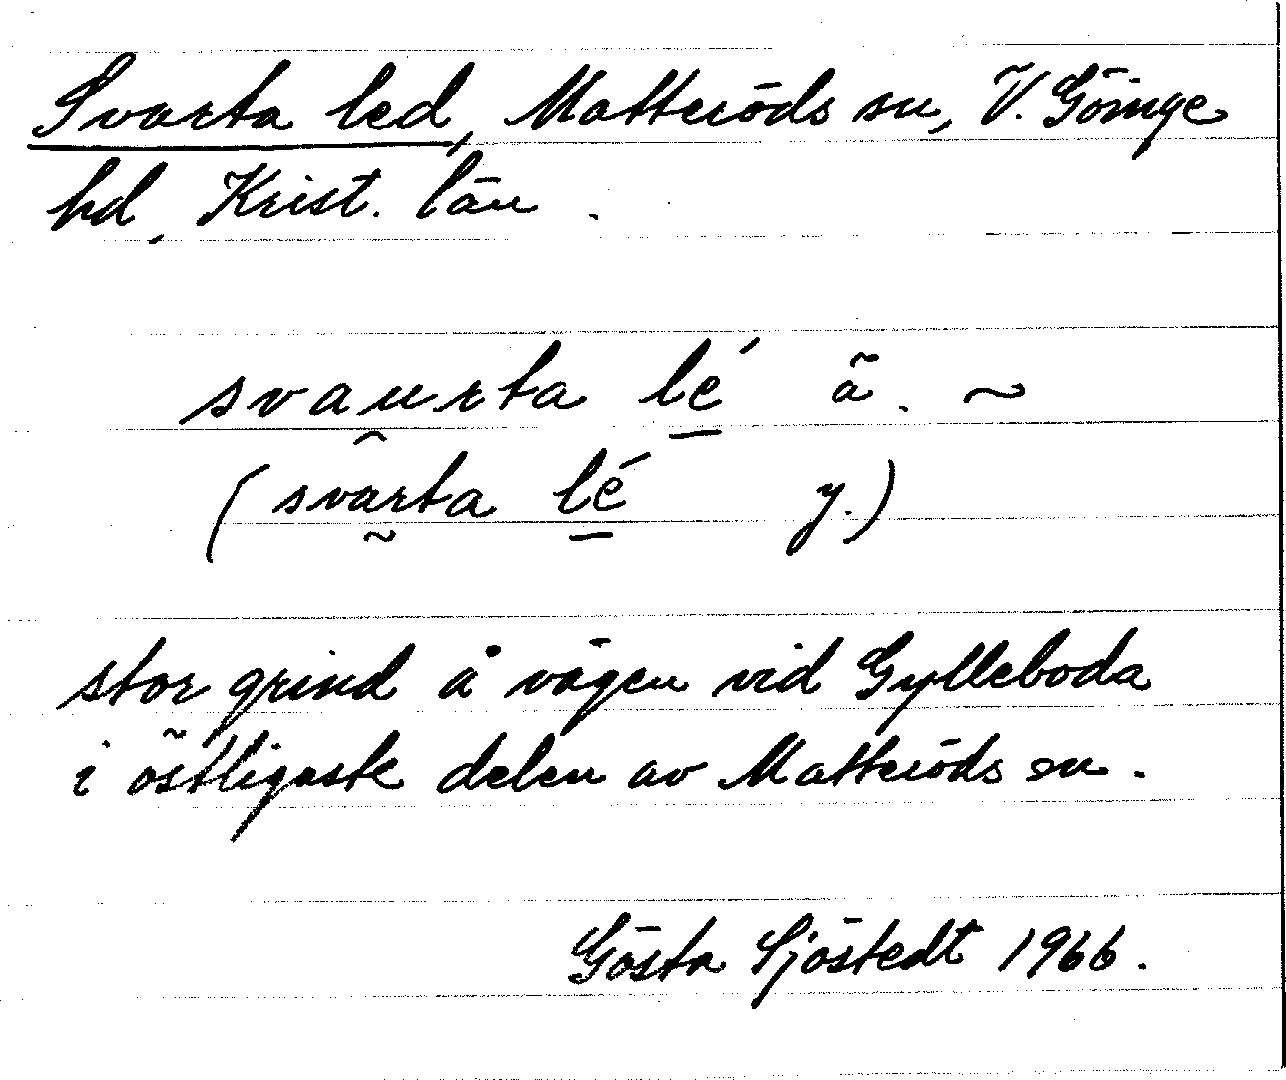 Svarta led, Matteröds sn, V. Göinge
hd, Krist. län.
svau̯rta lé̱ ä. ~
(sva̰rta lé̱ y.)
stor grind å vägen vid Gylleboda
i östligaste delen av Matteröds sn.
Gösta Sjöstedt 1966.